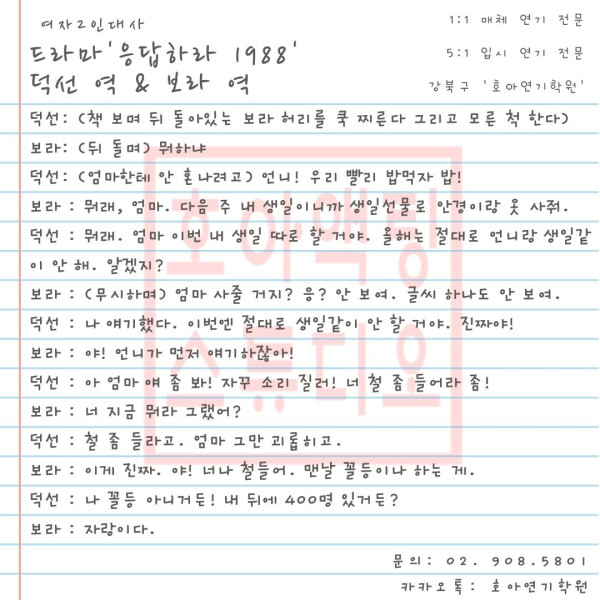 여자2인대사
1:1 매체 연기 전문
드라마'응답하라 1988'
5:1 입시 연기 전문
덕선 역 & 보라 역
강북구 '호아연기학원'
덕선: (책 보며 뒤 돌아있는 보라 허리를 쿡 찌른다 그리고 모른 척 한다)
보라: (뒤 돌며) 뭐하냐
덕선: (엄마한테 안 혼나려고) 언니! 우리 빨리 밥먹자 밥!
보라 : 뭐래, 엄마. 다음 주 내 생일이니까 생일선물로 안경이랑 옷 사줘.
덕선 : 뭐래. 엄마 이번 내 생일 따로 할 거야. 올해는 절대로 언니랑 생일같
이 안 해. 알겠지?
보라 : (무시하며) 엄마 사줄 거지? 응? 안 보여. 글씨 하나도 안 보여.
덕선 : 나 얘기했다. 이번엔 절대로 생일같이 안 할 거야. 진짜야!
보라 : 야! 언니가 먼저 얘기하잖아!
덕선 : 아 엄마 얘 좀 봐! 자꾸 소리 질러! 너 철 좀 들어라 좀!
보라 : 너 지금 뭐라 그랬어?
덕선 : 철 좀 들라고. 엄마 그만 괴롭히고.
보라 : 이게 진짜. 야! 너나 철들어. 맨날 꼴등이나 하는 게.
덕선 : 나 꼴등 아니거든! 내 뒤에 400명 있거든?
보라 : 자랑이다.
문의: 02. 908.5801
카카오톡: 호아연기학원
호아액팅
스튜디오